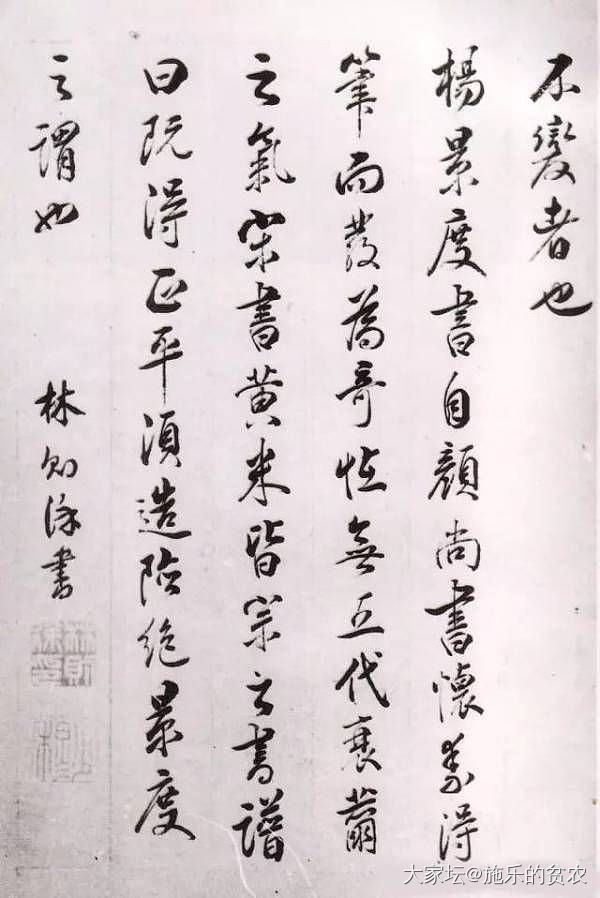 不變者也
楊景度書自顏尚書懷素得
筆而發為奇恠無五代衰薾
之氣宋書黃米皆宗之書譜
曰既得正平須造險絕景度
之謂也
林則徐書
大家坛@施乐的贫农